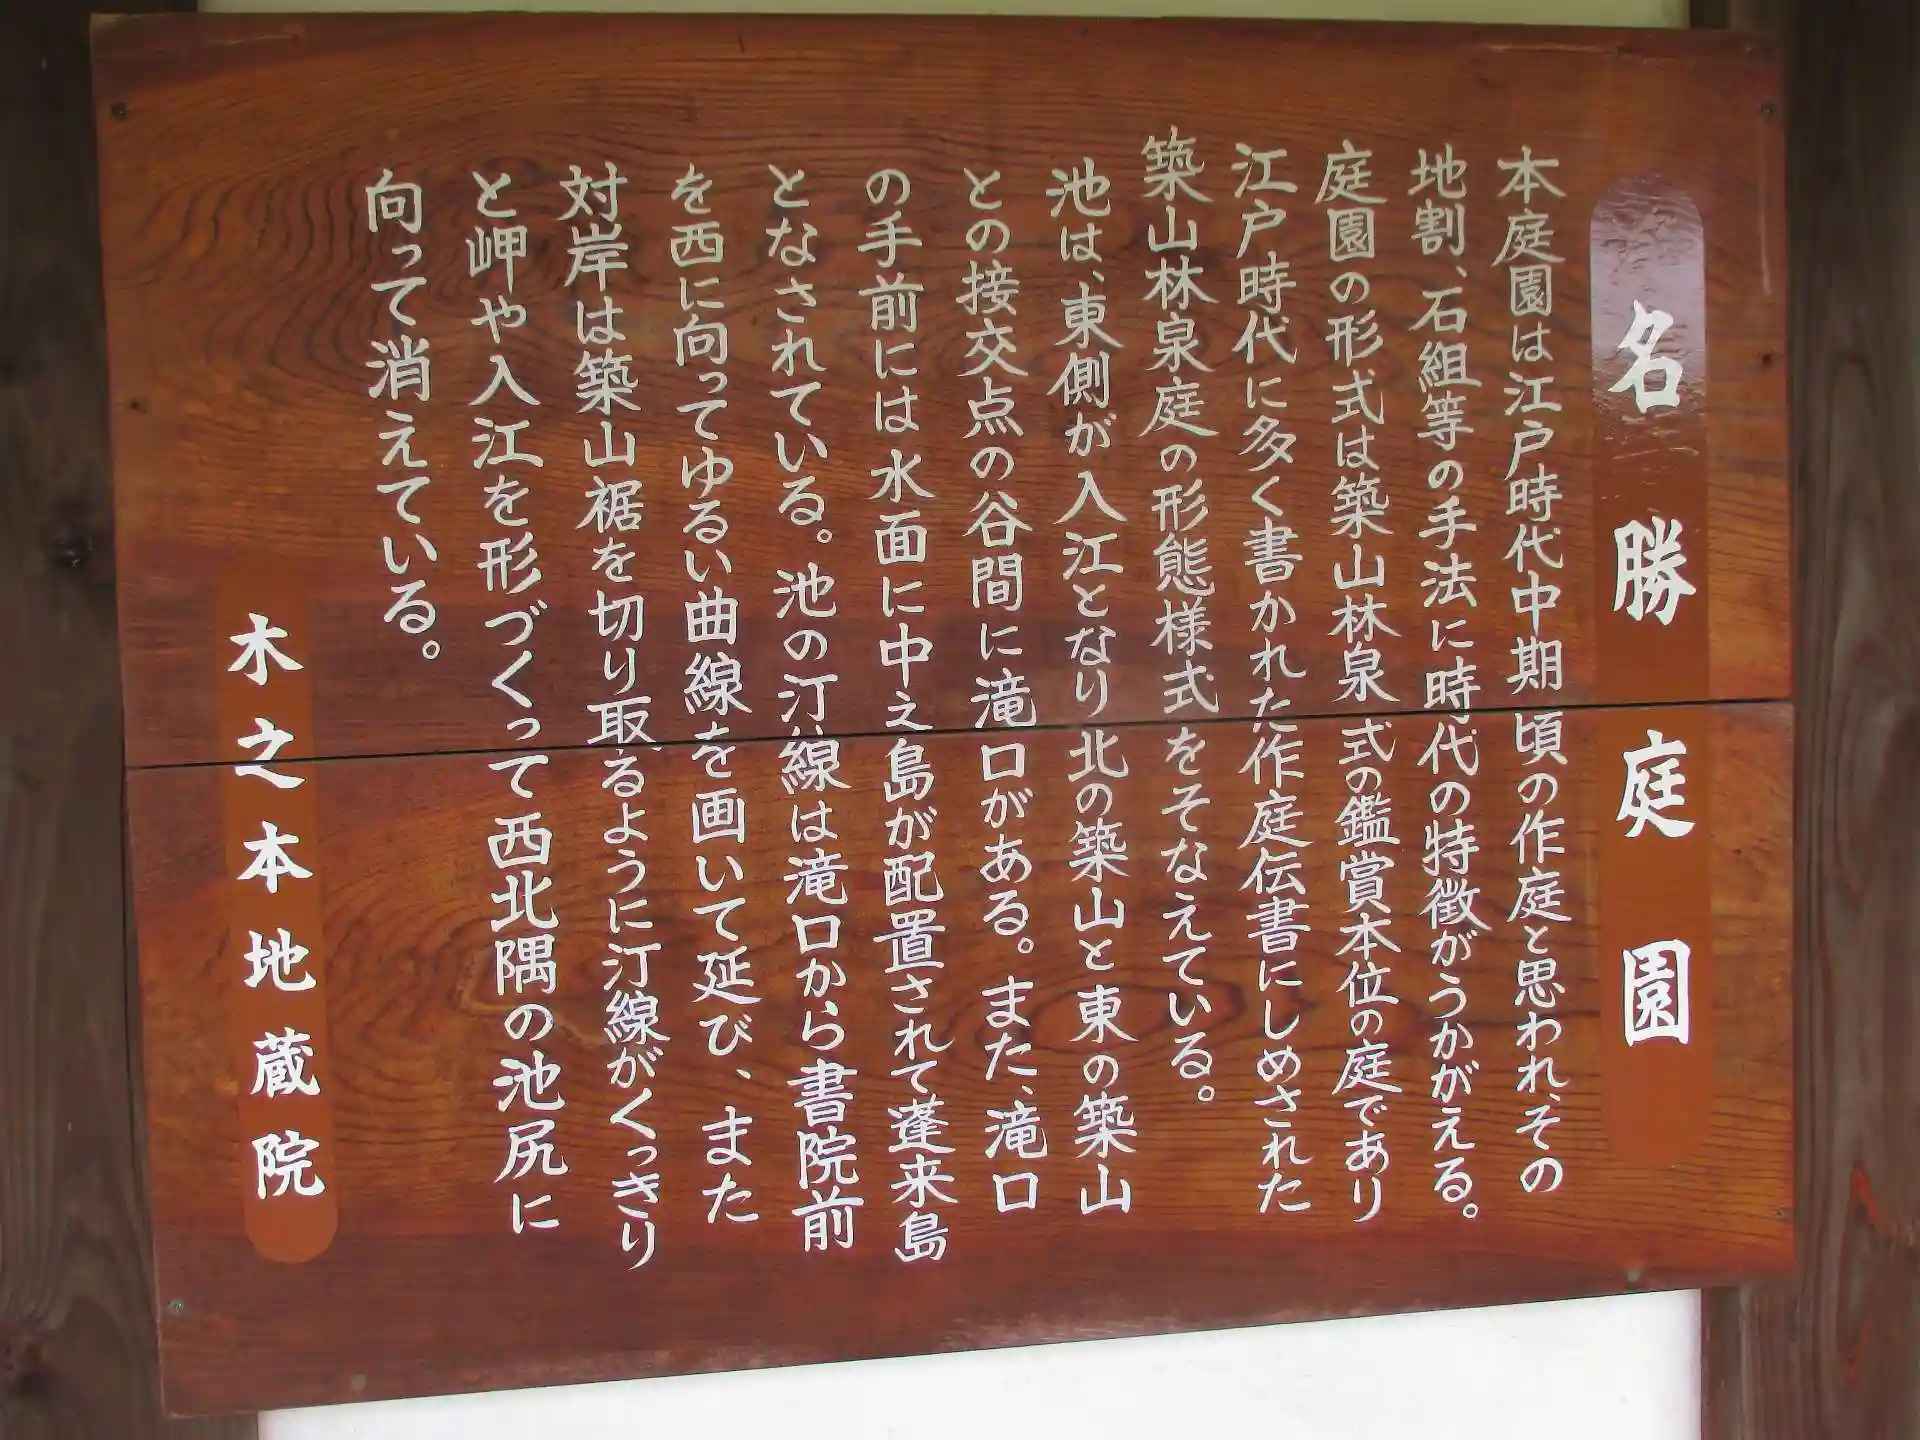 名勝庭園
本庭園は江戸時代中期頃の作庭と思われ、その
地割、石組等の手法に時代の特徴がうかがえる。
庭園の形式は築山林泉式の鑑賞本位の庭であり
江戸時代に多く書かれた作庭伝書にしめされた
築山林泉庭の形態様式をそなえている。
池は、東側が入江となり北の築山と東の築山
との接交点の谷間に滝口がある。また、滝口
の手前には水面に中之島が配置されて蓬来島
となされている。池の汀線は滝口から書院前
を西に向ってゆるい曲線を画いて延び、また
対岸は築山裾を切り取るように汀線がくっきり
と岬や入江を形づくって西北隅の池尻に
向って消えている。
木之本地蔵院